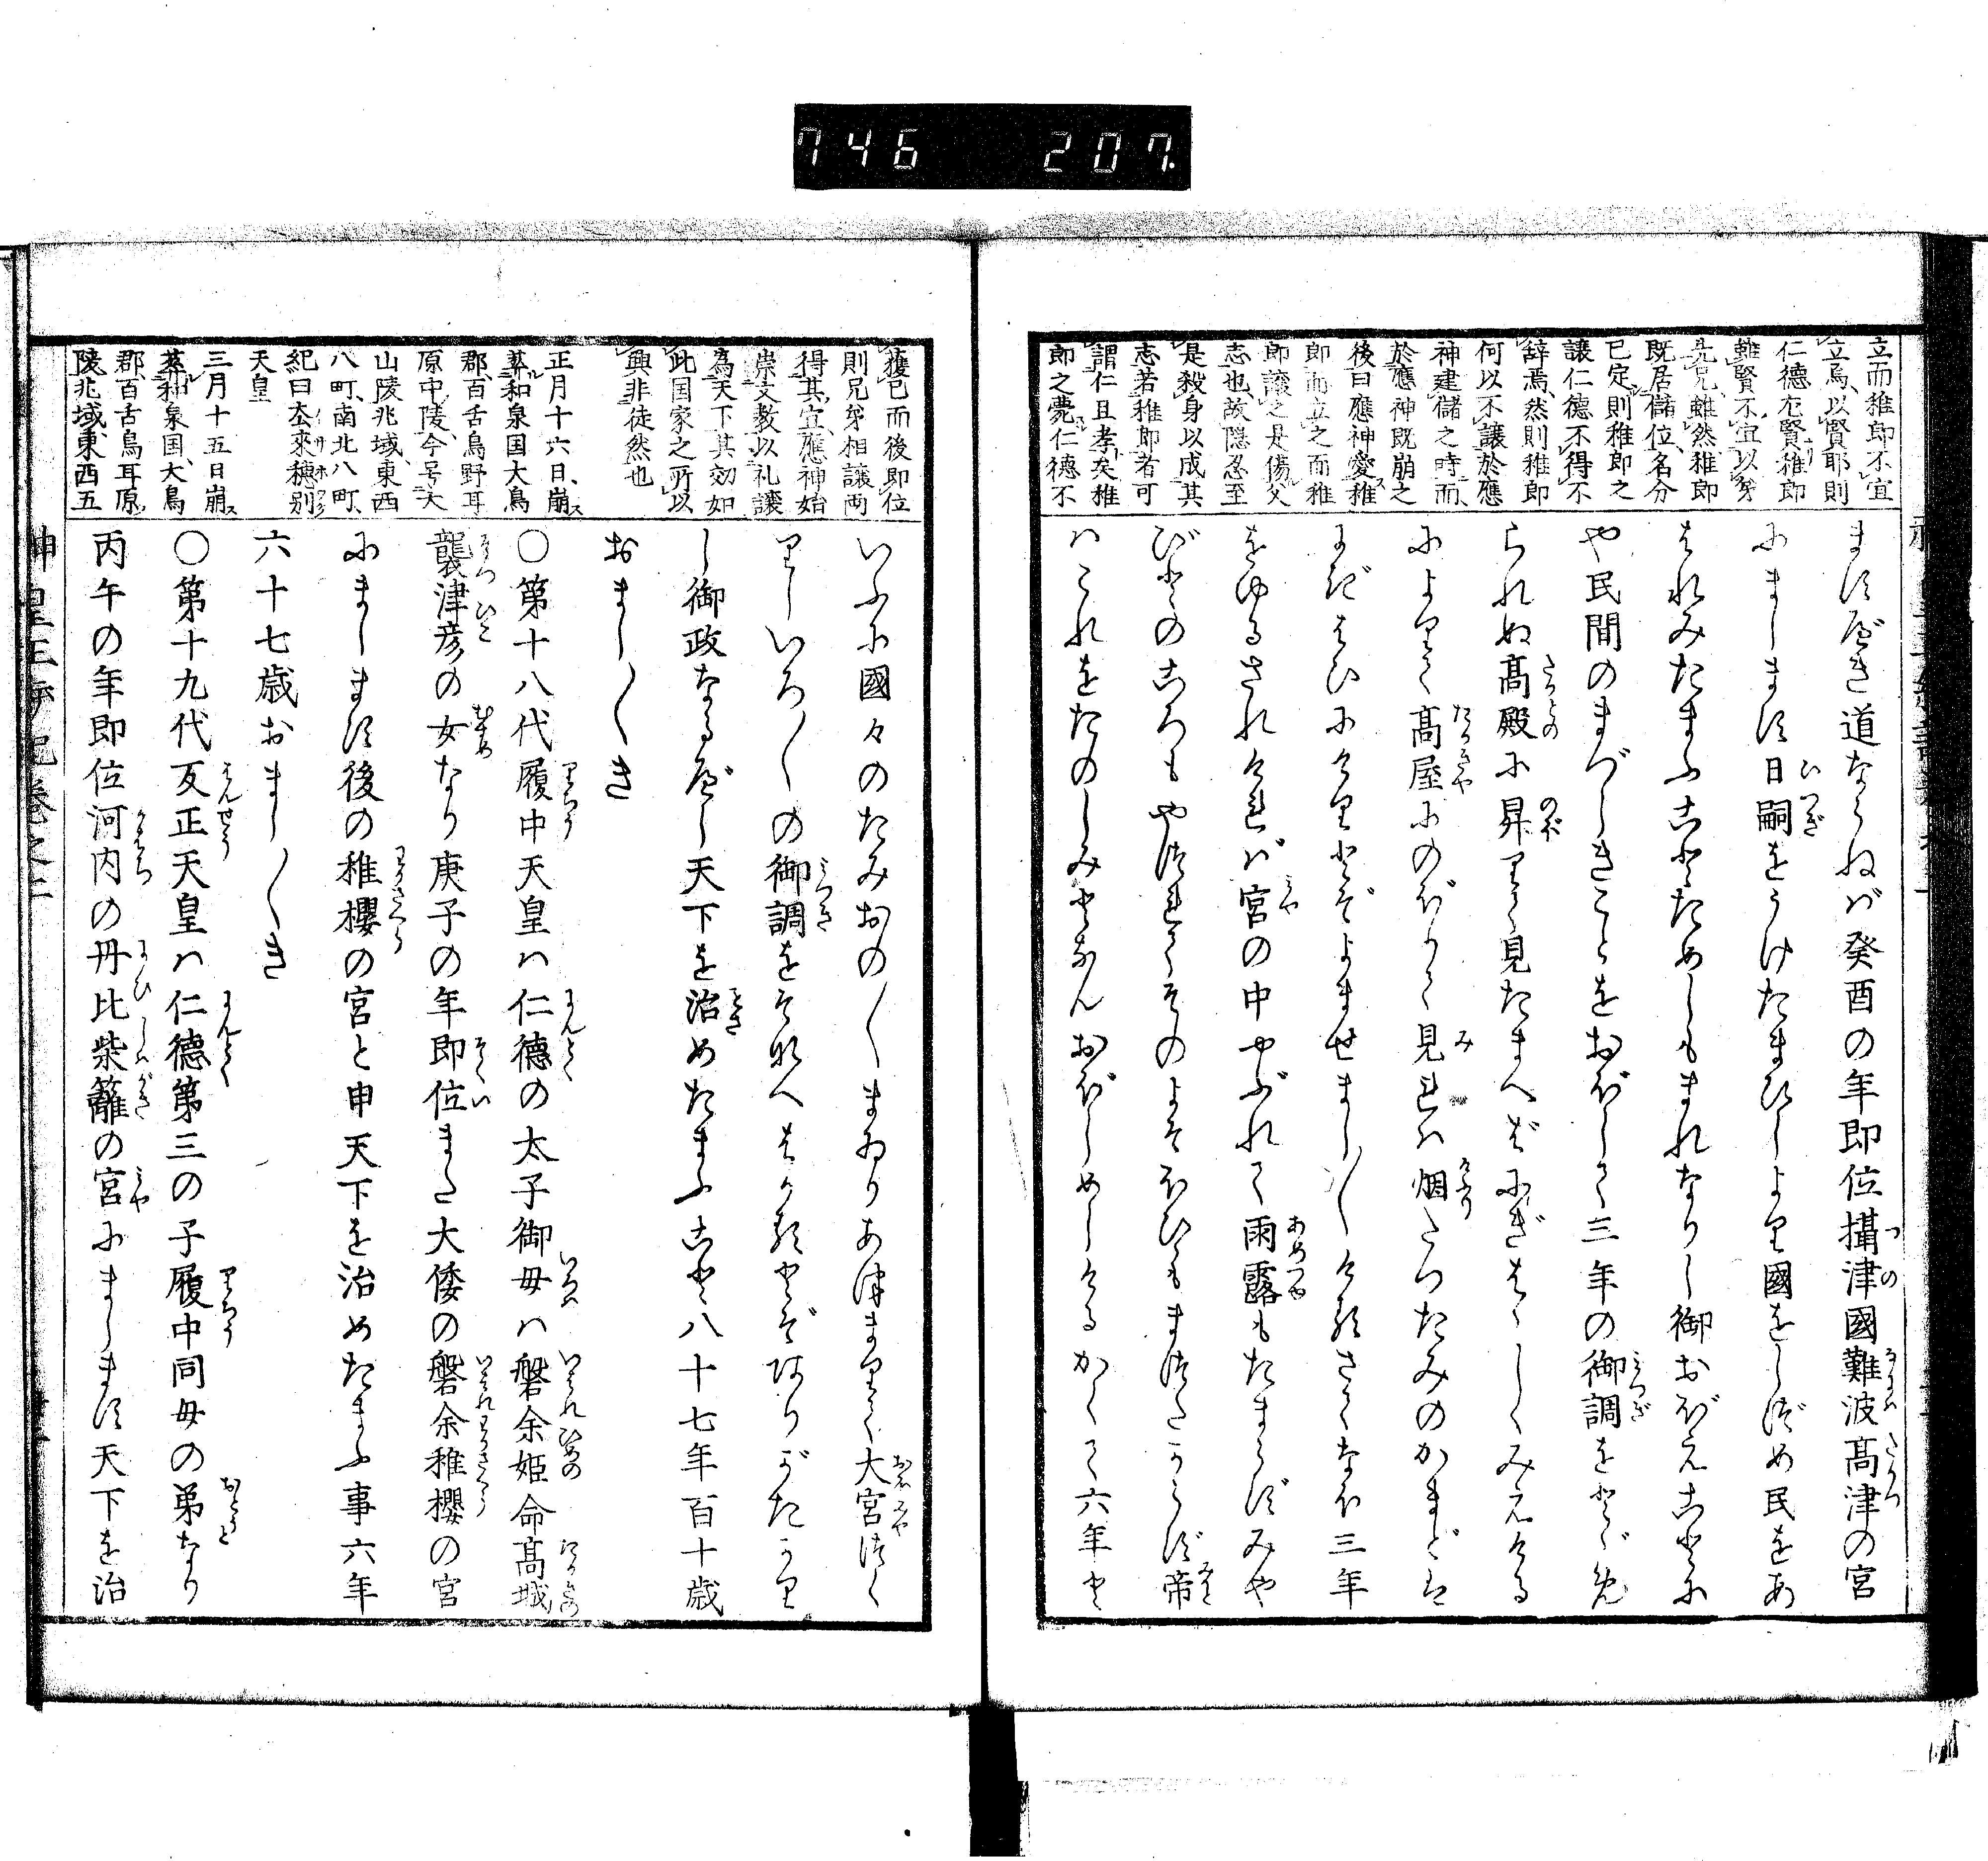 746 207
立而稚郎不宜
立焉、以賢耶則
仁德尤賢稚郎
雖賢不宜以弟
先兄、雖然稚郎
既居儲位、名分
已定則稚郎之
讓仁德不得不
辞焉、然則稚郎
何以不讓於應
神建儲之時、而
於應神既崩之
後曰應神愛稚
郎而立之而稚
郎讓之是傷父
志也、故隠忍至
是殺身以成其
志若稚郎若可
謂仁且孝矣稚
郎之薨仁德不
ますべき道ならねバ癸酉の年即位攝津國難波髙津の宮
にまします日嗣をうけたまひしより國をしづめ民をあ
はれみたまふことためしもまれなりし御おぼえことに
や民間のまづしきことをおぼして三年の御調をとゞめ
られぬ髙殿に昇りて見たまへばにぎはゝしくみえける
によりて髙屋にのぼりて見れハ烟たつたみのかまどは
にぎはひにけりとぞよませまし〱けるさてなほ三年
をゆるされけれバ宮の中やぶれて雨露もたまらずみや
びとのころもやつれてそのよそほひもまつたからず帝
ハこれをたのしみとなんおぼしめしけるかくて六年と
獲已而後即位
則兄弟相讓両
得其宜、應神始
崇文教以礼讓
為天下其効如
此国家之所以
興非徒然也
正月十六日、崩ス
葬ル和泉国大鳥
郡、百舌鳥野耳
原中陵、今号大
山陵兆域、東西
八町、南北八町、
紀曰去來穂別
天皇
三月十五日崩ス
葬ル和泉国、大鳥
郡、百舌鳥耳原
陵兆域、東西五
いふに國々のたみおの〱まゐりあつまりて大宮つく
りしいろ〱の御調をそなへはべるとぞありがたかり
し御政なるべし天下を治めたまふこと八十七年百十歳
おまし〱き
〇第十八代履中天皇ハ仁德の太子御母ハ磐余姫命髙城
襲津彦の女なり庚子の年即位また大倭の磐余稚櫻の宮
にまします後の稚櫻の宮と申天下を治めたまふ事六年
六十七歳おまし〱き
〇第十九代反正天皇ハ仁德第三の子履中同母の弟なり
丙午の年即位河内の丹比柴籬の宮にまします天下を治
神皇正統記巻之二